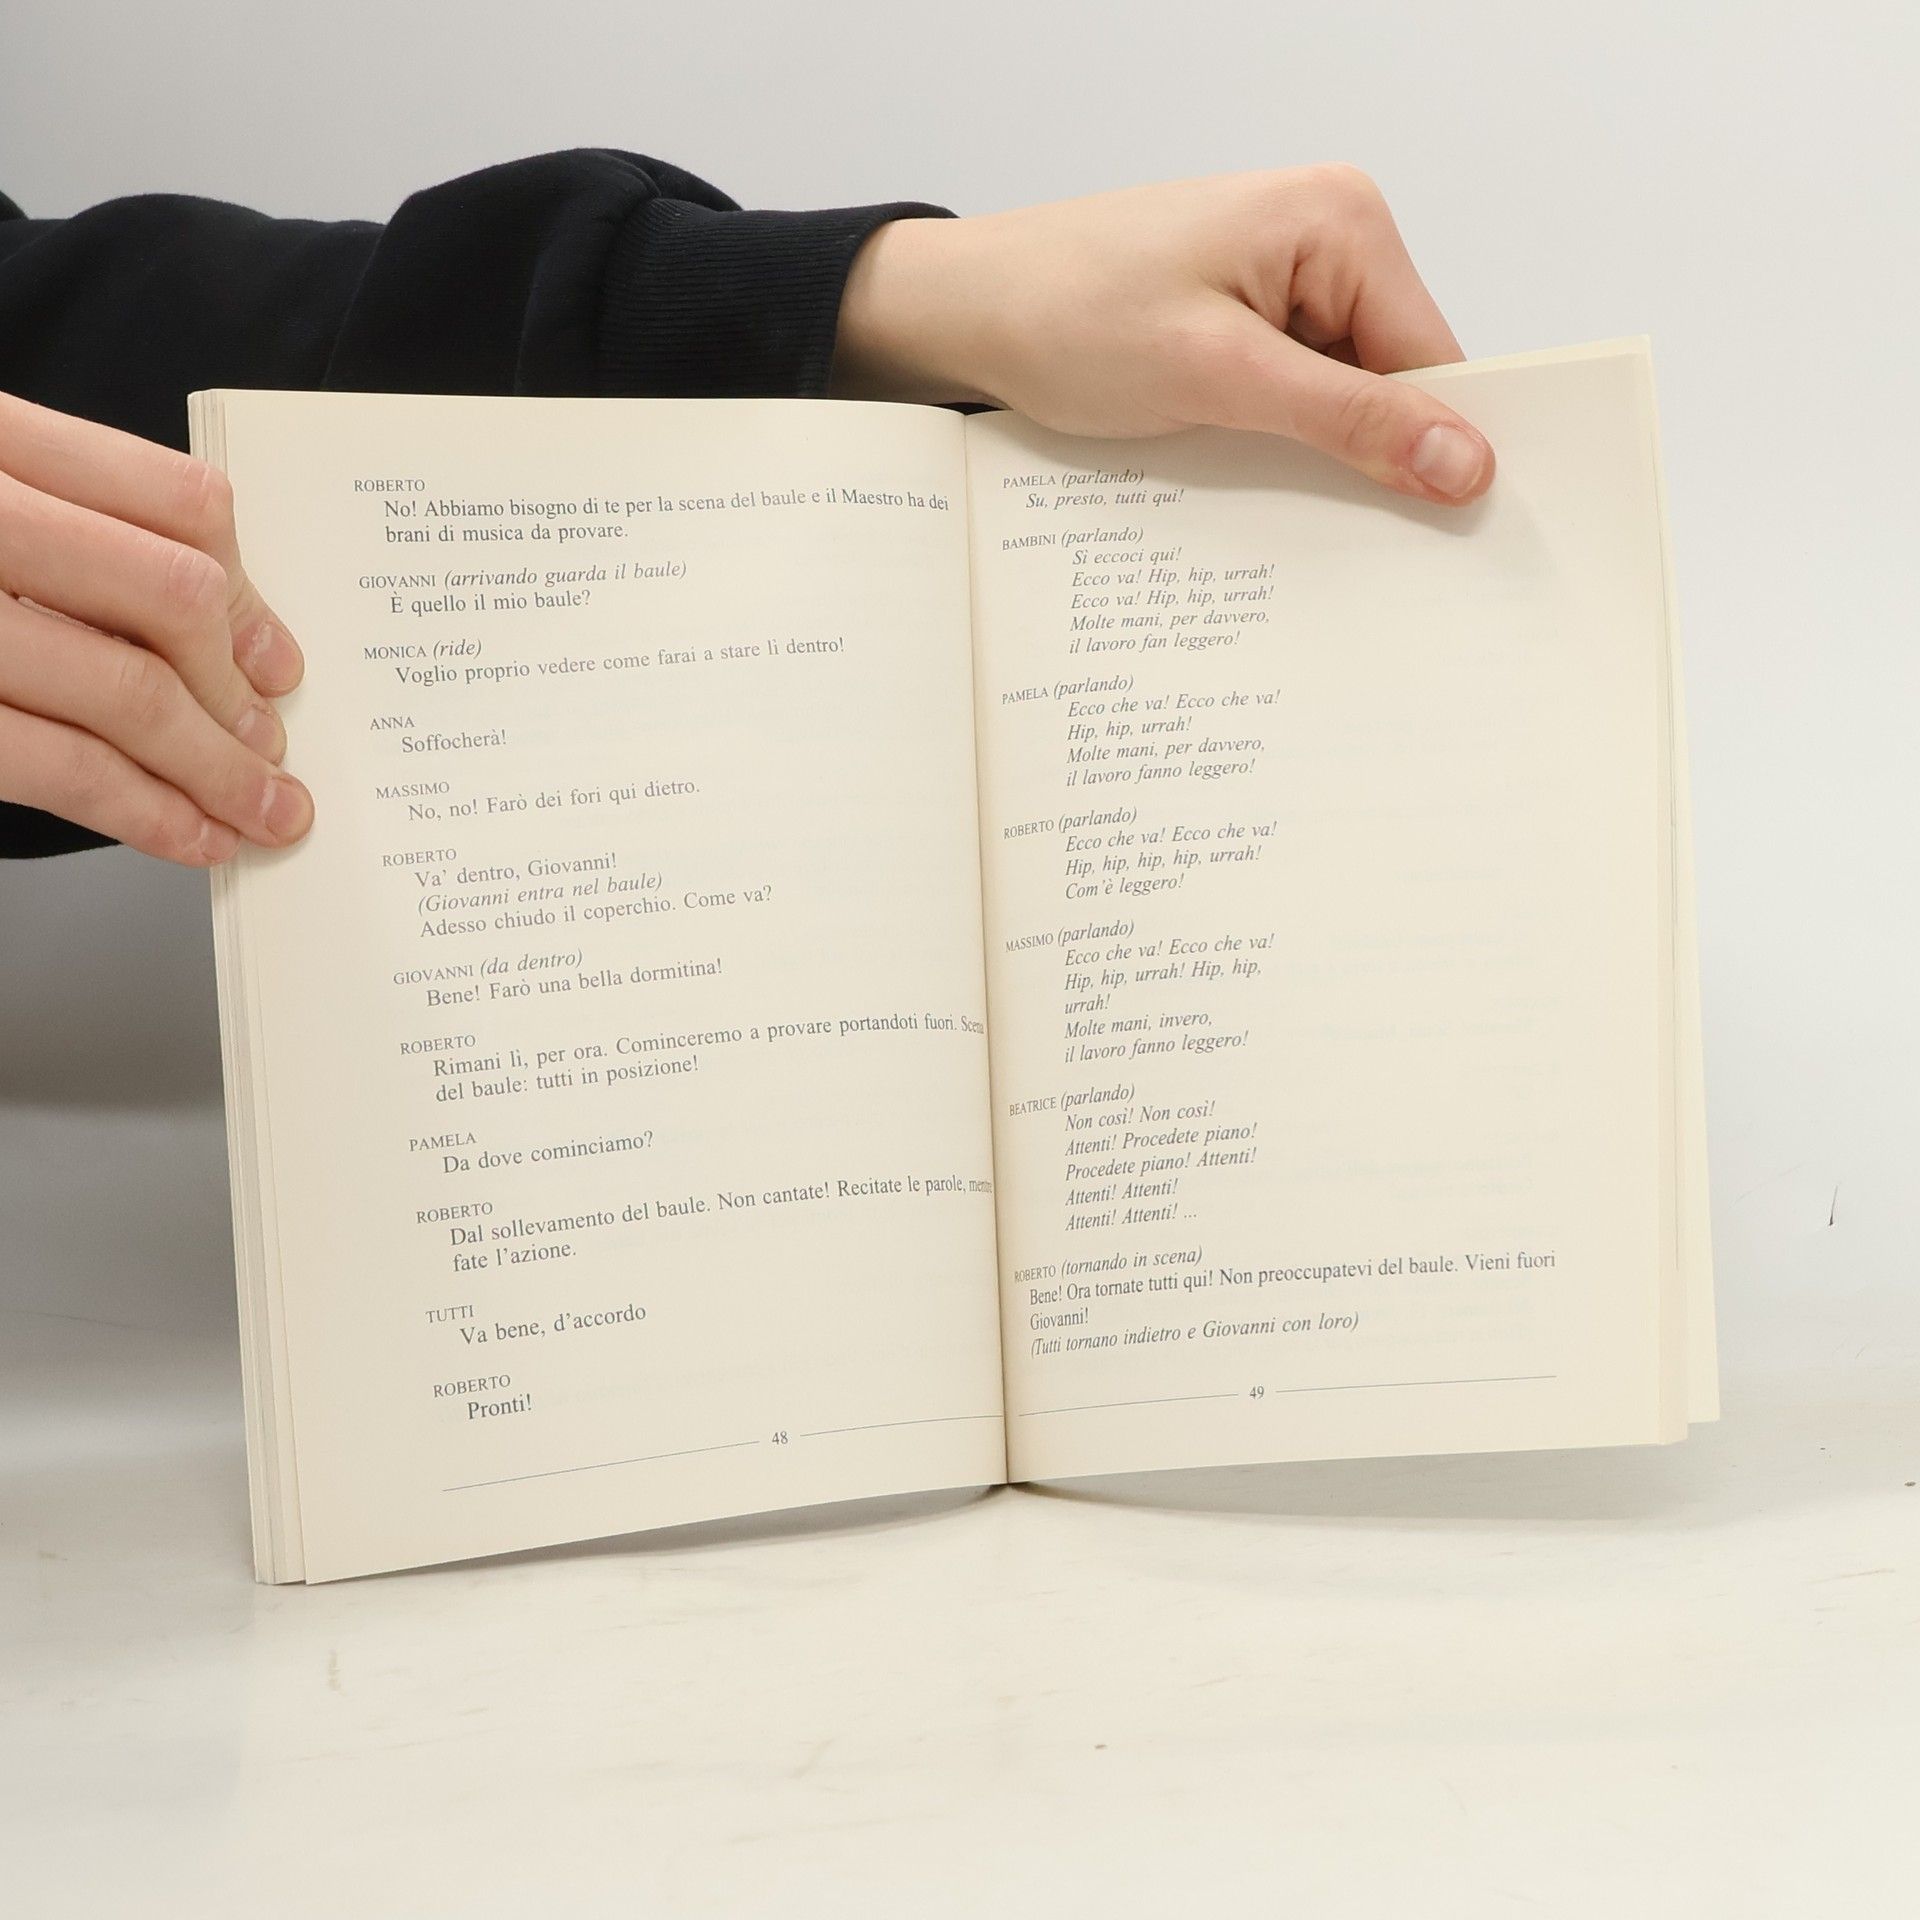 ROBERTO
No! Abbiamo bisogno di te per la scena del baule e il Maestro ha dei
brani di musica da provare.
GIOVANNI (arrivando guarda il baule)
È quello il mio baule?
MONICA (ride)
Voglio proprio vedere come farai a stare lì dentro!
ANNA
Soffocherà!
MASSIMO
No, no! Farò dei fori qui dietro.
ROBERTO
Va' dentro, Giovanni!
(Giovanni entra nel baule)
Adesso chiudo il coperchio. Come va?
GIOVANNI (da dentro)
Bene! Farò una bella dormitina!
ROBERTO
Rimani lì, per ora. Cominceremo a provare portandoti fuori. Scena
del baule: tutti in posizione!
PAMELA
Da dove cominciamo?
ROBERTO
Dal sollevamento del baule. Non cantate! Recitate le parole, mentre
fate l'azione.
TUTTI
Va bene, d'accordo
ROBERTO
Pronti!
48
PAMELA (parlando)
Su, presto, tutti qui!
BAMBINI (parlando)
Sì eccoci qui!
Ecco va! Hip, hip, urrah!
Ecco va! Hip, hip, urrah!
Molte mani, per davvero,
il lavoro fan leggero!
PAMELA (parlando)
Ecco che va! Ecco che va!
Hip, hip, urrah!
Molte mani, per davvero,
il lavoro fanno leggero!
ROBERTO (parlando)
Ecco che va! Ecco che va!
Hip, hip, hip, hip, urrah!
Com'è leggero!
MASSIMO (parlando)
Ecco che va! Ecco che va!
Hip, hip, urrah! Hip, hip,
urrah!
Molte mani, invero,
il lavoro fanno leggero!
BEATRICE (parlando)
Non così! Non così!
Attenti! Procedete piano!
Procedete piano! Attenti!
Attenti! Attenti!
Attenti! Attenti! ...
ROBERTO (tornando in scena)
Bene! Ora tornate tutti qui! Non preoccupatevi del baule. Vieni fuori
Giovanni!
(Tutti tornano indietro e Giovanni con loro)
49